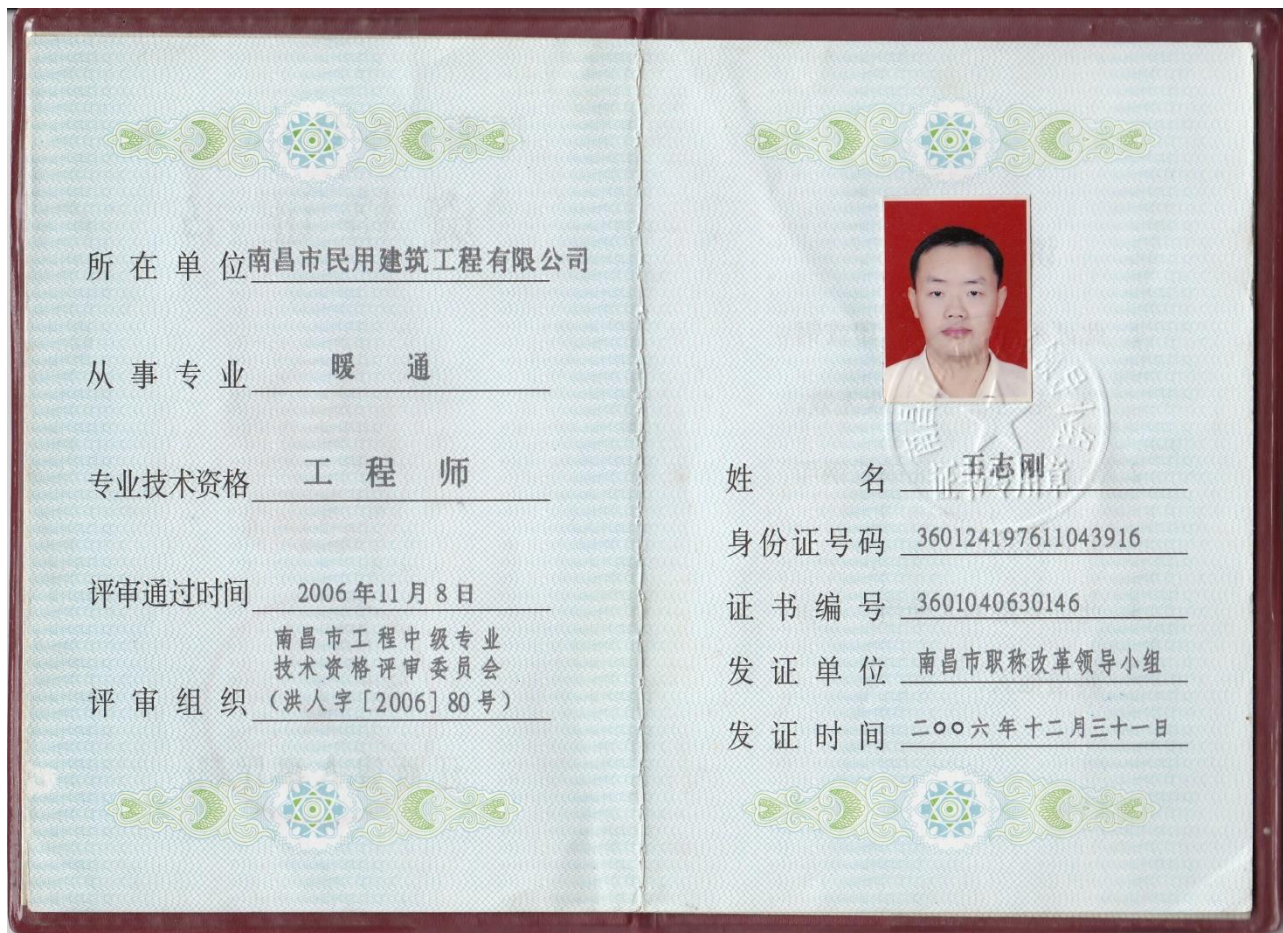 所在单位 南昌市民用建筑工程有限公司
从事专业 暖通
专业技术资格 工程师
评审通过时间 2006年11月8日
南昌市工程中级专业
技术资格评审委员会
评审组织 (洪人字[2006]80号)
姓名 王志刚
身份证号码 360124197611043916
证书编号 3601040630146
发证单位 南昌市职称改革领导小组
发证时间 二〇〇六年十二月三十一日
南昌
证书专用章